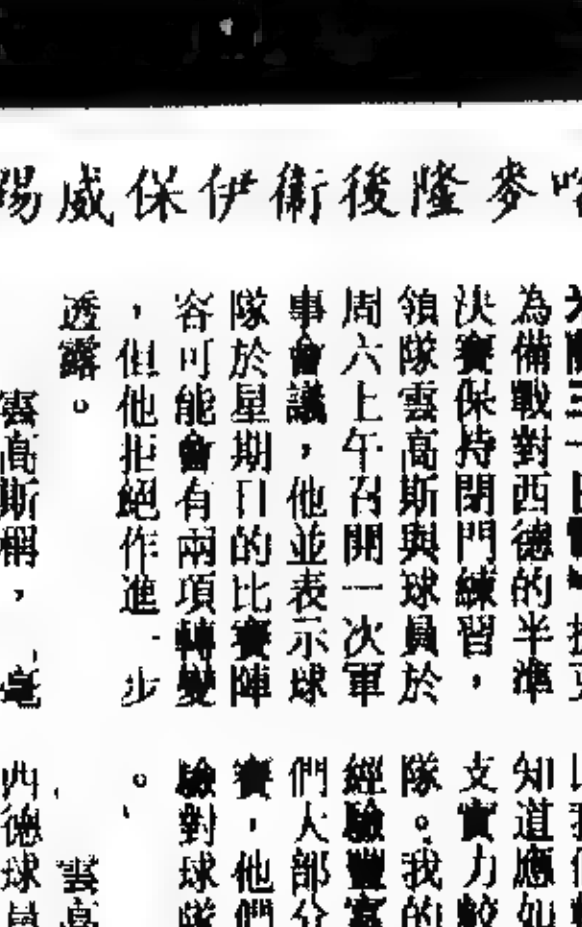 麥隆後衛伊保威
為備戰對西德的半準
決賽保持閉門練習，
領隊雲高斯與球員於
周六上午召開一次軍
事會議，他並表示球
隊於星期日的比賽陣
容可能會有兩項轉變
，但他拒絕作進一步
透露。
雲高斯稱，毫
知道應如
支實力較
隊。我的
經驗豐富
們大部分
賽，他們
驗對球隊
。
雲高
西德球員